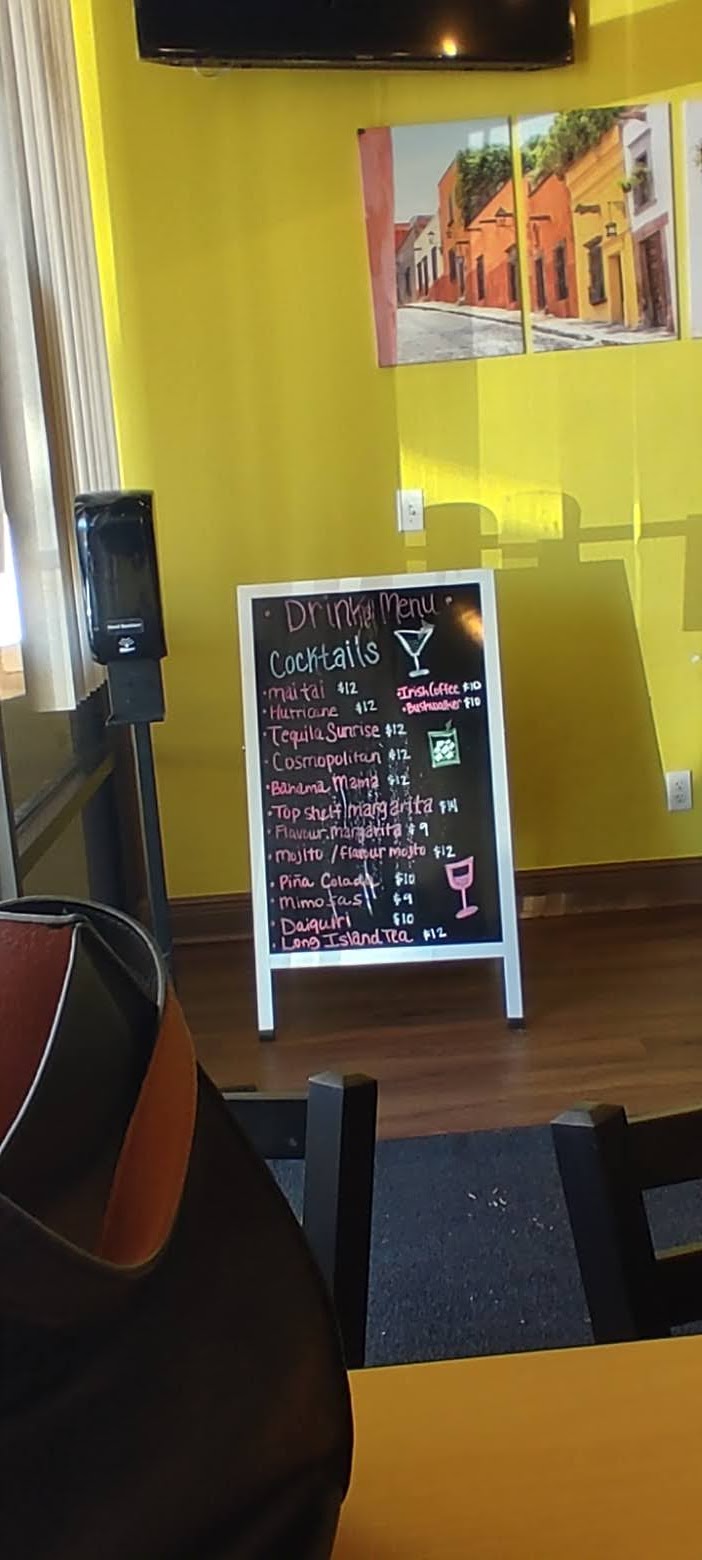 Drink Menu
Cocktails
mai tai $12
Hurricane $12
Irish Coffee $10
Bushwalker $10
Tequila Sunrise $12
Cosmopolitan $12
Bahama Mama $12
Top shelf margarita $14
Flavour margarita $9
mojito / flavour mojito $12
Piña Colada $10
Mimosas $9
Daiquiri $10
Long Island Tea $12